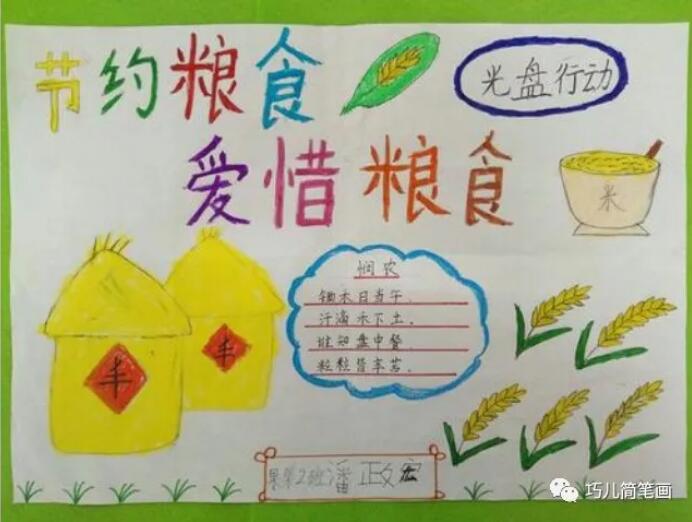 节约粮食
光盘行动
爱惜粮食
米
悯农
锄禾日当午,
汗滴禾下土,
谁知盘中餐,
粒粒皆辛苦。
丰
丰
果果2班潘政宏
巧儿简笔画